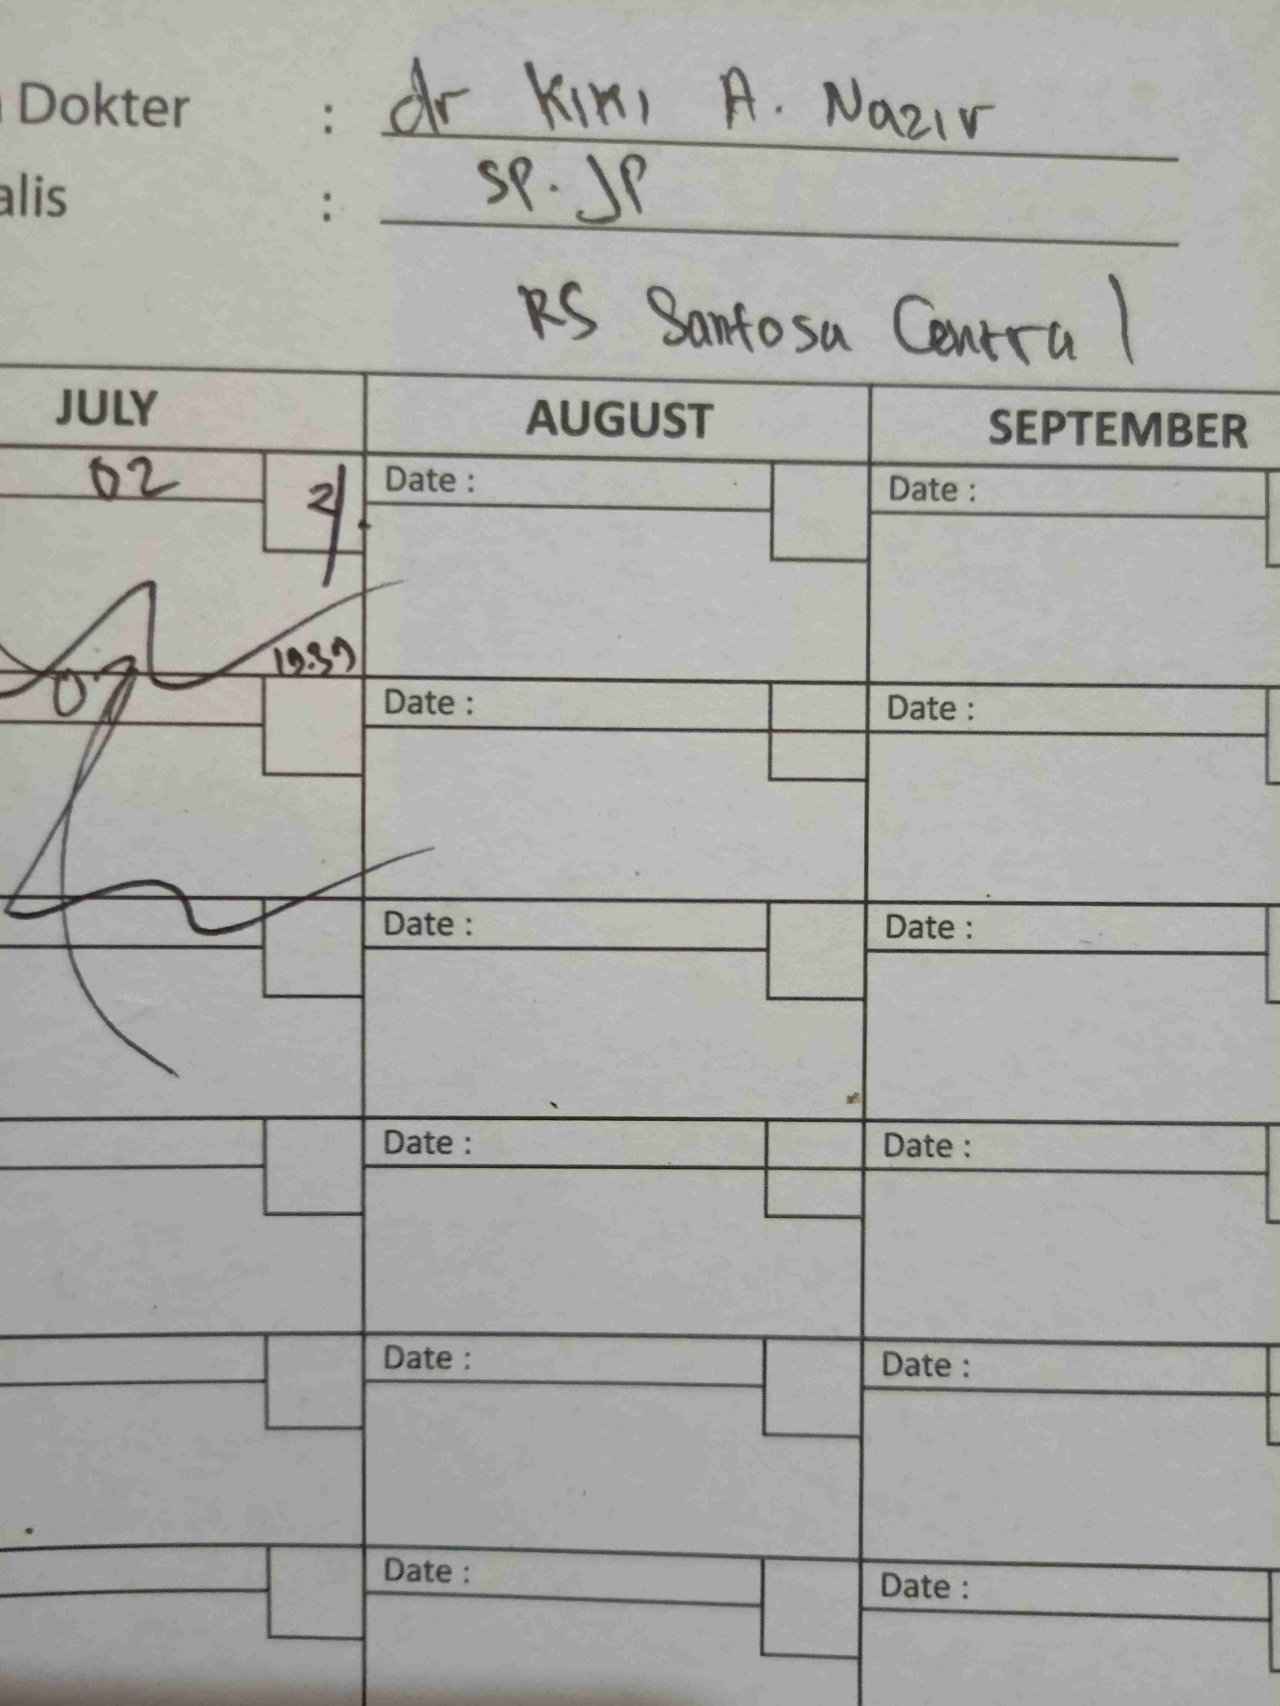 Dokter : dr Kiki A. Nazir
alis : SP. JP
RS Santosa Central
JULY AUGUST SEPTEMBER
02 2/ Date : Date :
19.39
07 Date : Date :
Date : Date :
Date : Date :
Date : Date :
Date : Date :